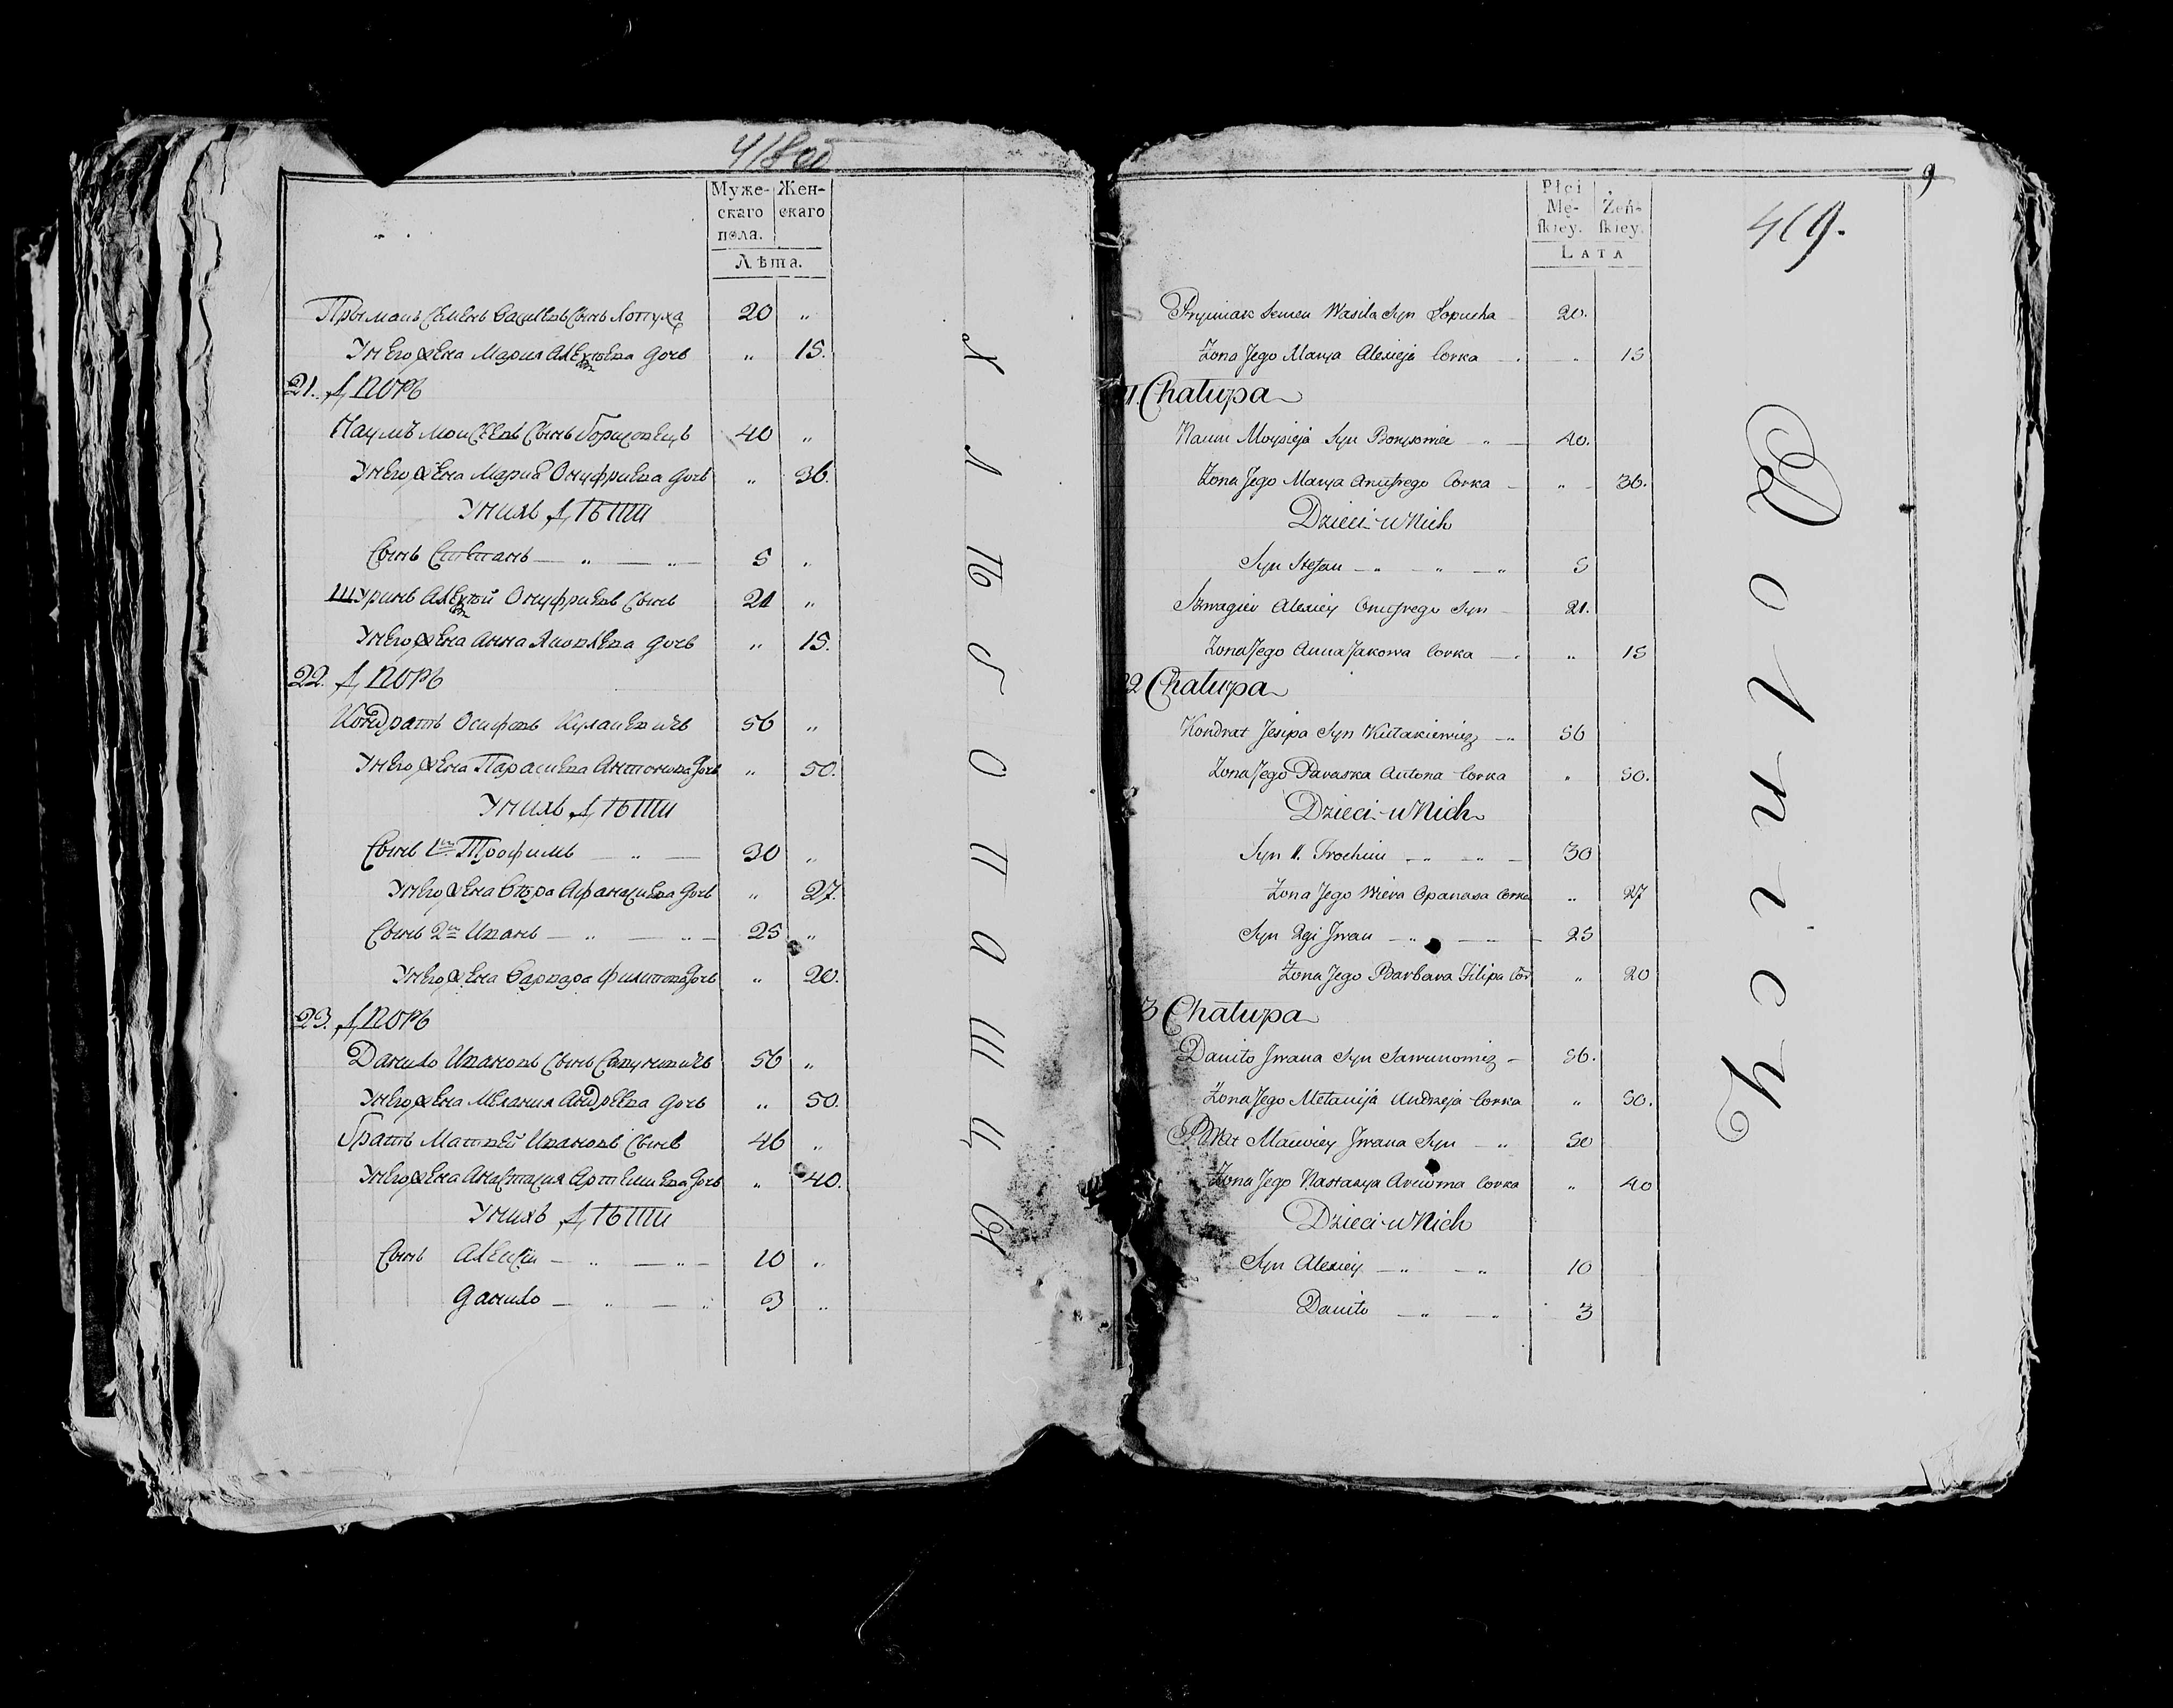 418 об
Муже-
скаго
пола.
Жен-
скаго
Лѣта.
Прымакъ Семенъ Василевъ Сынъ Лопуха 20 "
У него жена Мария Алексѣева дочь " 15.
21. дворъ
Наумъ Моисеевъ Сынъ Борисовецъ 40 "
У него жена Мария Онуфриева дочь " 36.
У нихъ дѣти
Сынъ Стефанъ — " — " — 5 "
Шуринъ Алексѣй Онуфриевъ Сынъ 21 "
У него жена Анна Яковлева дочь " 15.
22. дворъ
Кондратъ Осифовъ Кулакевичъ 56 "
У него жена Параскева Антонова дочь " 50.
У нихъ дѣти
Сынъ 1й Трофимъ — " — 30 "
У него жена Вѣра Афанасиева дочь " 27.
Сынъ 2й Иванъ — " — " — 25 "
У него жена Варвара Филипова дочь " 20.
23. дворъ
Данило Ивановъ Сынъ Савуневичъ 56 "
У него жена Мелания Андреева дочь " 50.
Братъ Матвей Ивановъ Сынъ 46 "
У него жена Анастасия Артемиева дочь " 40.
У нихъ дѣти
Сынъ Алексѣй — " — " — 10 "
Данило — " — " 3 "
9
419.
Płci
Mę-
ſkiey.
Żeń-
ſkiey.
LATA
Prymak Semen Wasila Syn Łopucha 20.
Żona Jego Marya Alexieja Corka " 15
Chałupa
Naum Moysieja Syn Borysowiec " 40.
Żona Jego Marya Anufrego Corka " 36.
Dzieci u Nich
Syn Stefan — " — " — " 5
Szwagier Alexiey Onufrego Syn 21.
Żona Jego Anna Jakowa Corka " 15
22 Chałupa
Kondrat Jesipa Syn Kułakiewicz 56
Żona Jego Paraska Antona Corka " 50.
Dzieci u Nich
Syn 1. Trochim — " — " — 30
Żona Jego Wiera Opanasa Corka " 27
Syn 2gi Jwan — " — " — 25
Żona Jego Barbara Filipa Cor " 20
3 Chałupa
Daniło Jwana Syn Sawunowicz 56.
Żona Jego Mełanija Andrzeja Corka " 50.
Brat Maciey Jwana Syn — " 50
Żona Jego Nastazya Corka " 40
Dzieci u Nich
Syn Alexiey — " — " 10
Daniło — " — " 3
Dolnicy